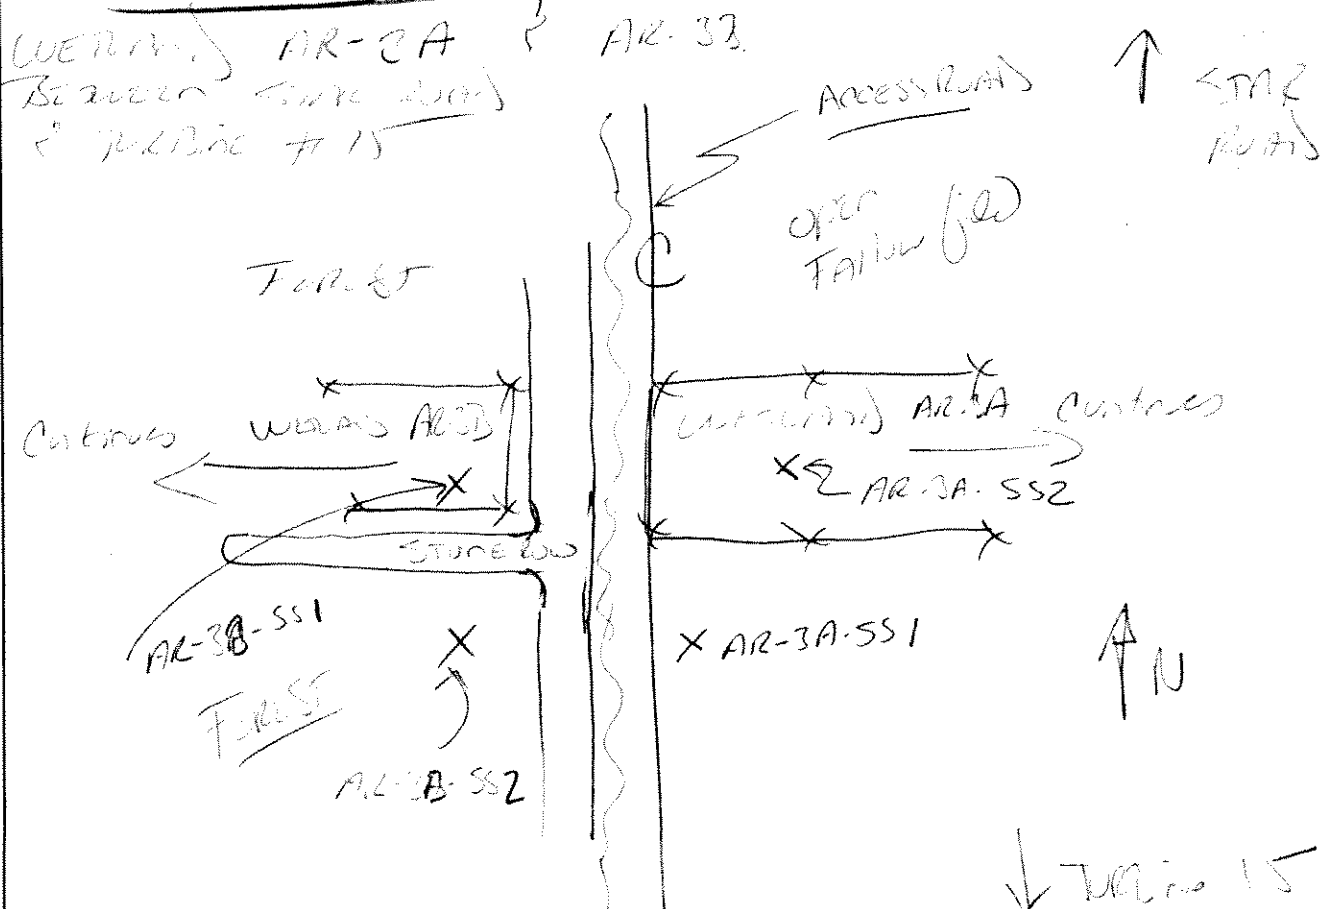 WETLAND AR-2A & AR-3B
BETWEEN STAR ROAD
& TURBINE # 15
ACCESS ROAD
STAR
ROAD
OPEN
FALLOW field
FOREST
WETLAND AR-3B
Continues
WETLAND AR-3A Continues
AR-3A-SS2
STONE ROW
AR-3B-SS1
AR-3A-SS1
FOREST
N
AR-3B-SS2
TURBINE 15